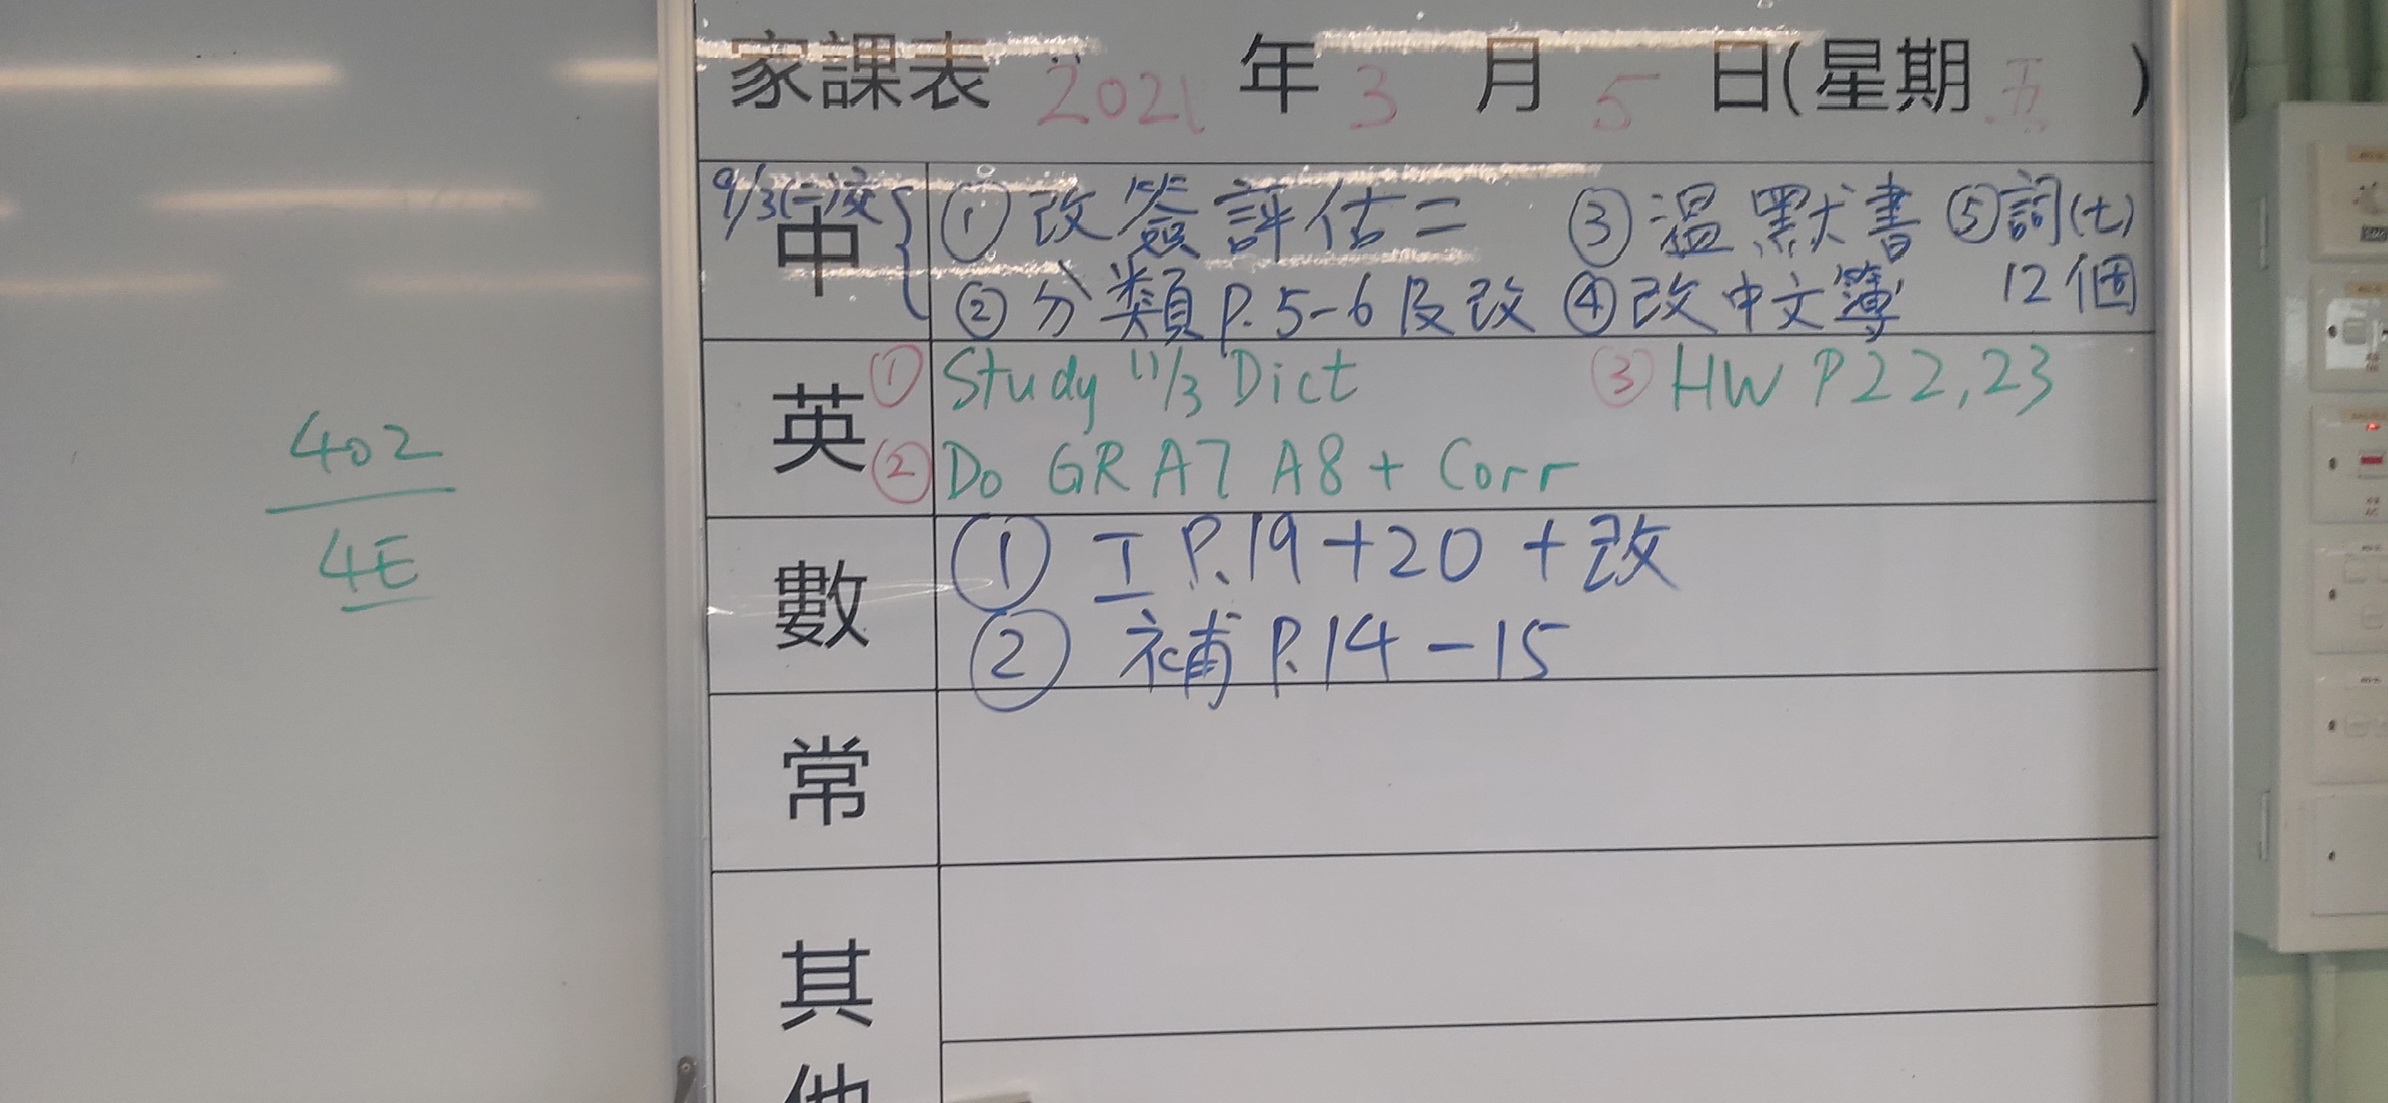 家課表 2021 年 3 月 5 日(星期 五 )
9/3(二)交
中
① 改簽評估二 ③ 溫默書 ⑤ 詞(七)
② 分類 P.5-6 及改 ④ 改中文簿 12個
英
① Study 11/3 Dict ③ HW P22,23
② Do GR A7 A8 + Corr
數
① 工 P.19+20 + 改
② 補 P.14-15
常
其他
402
4E